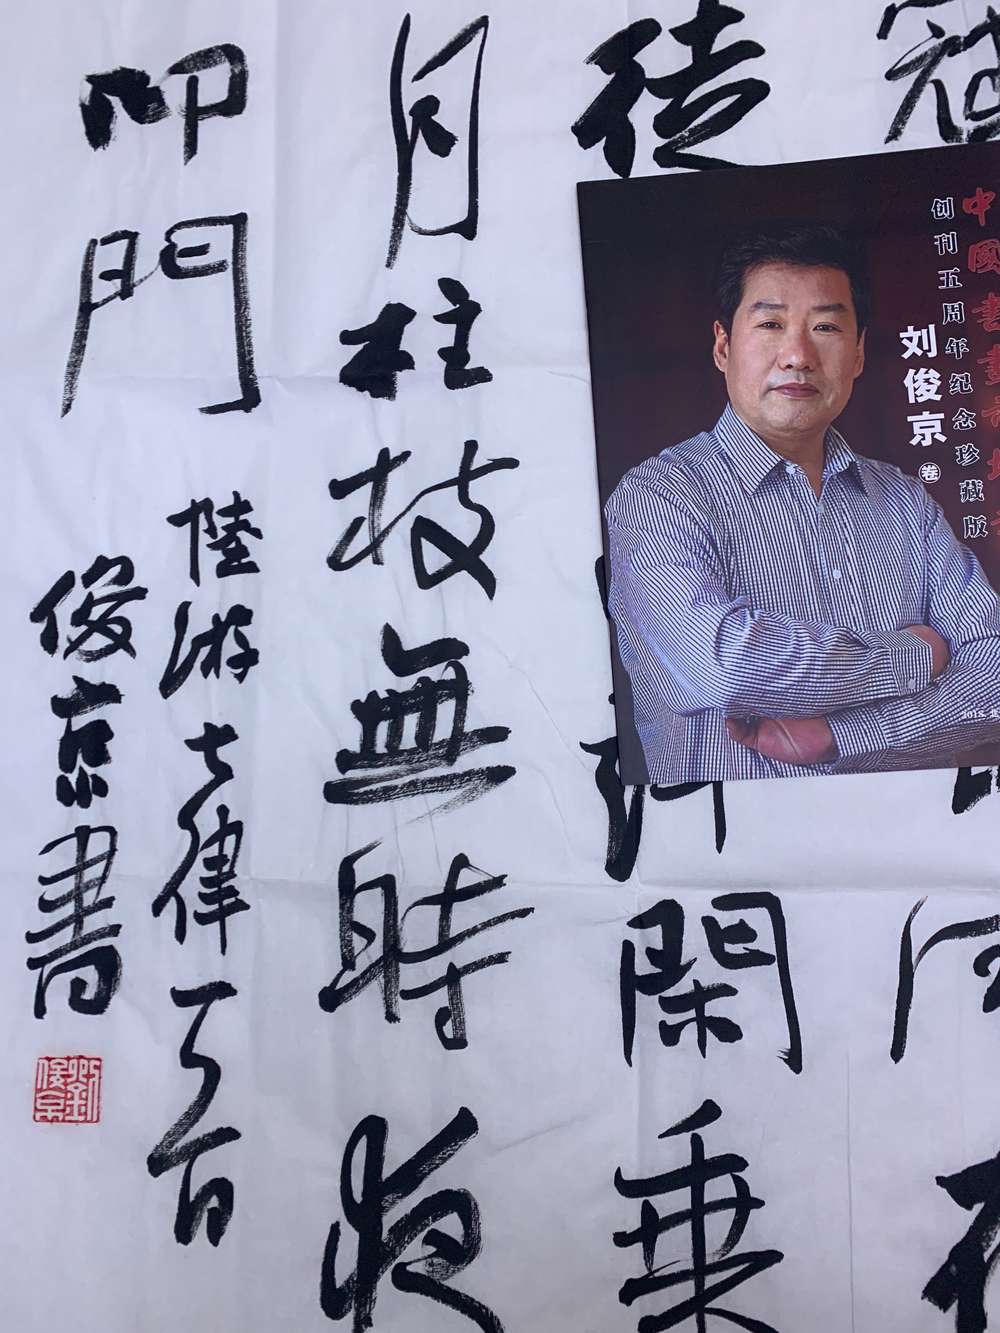 冠
從
許閑乘
月拄杖無時夜
叩門
陸游七律一首
俊京書
劉俊京
中國書畫市場
创刊五周年纪念珍藏版
刘俊京 卷